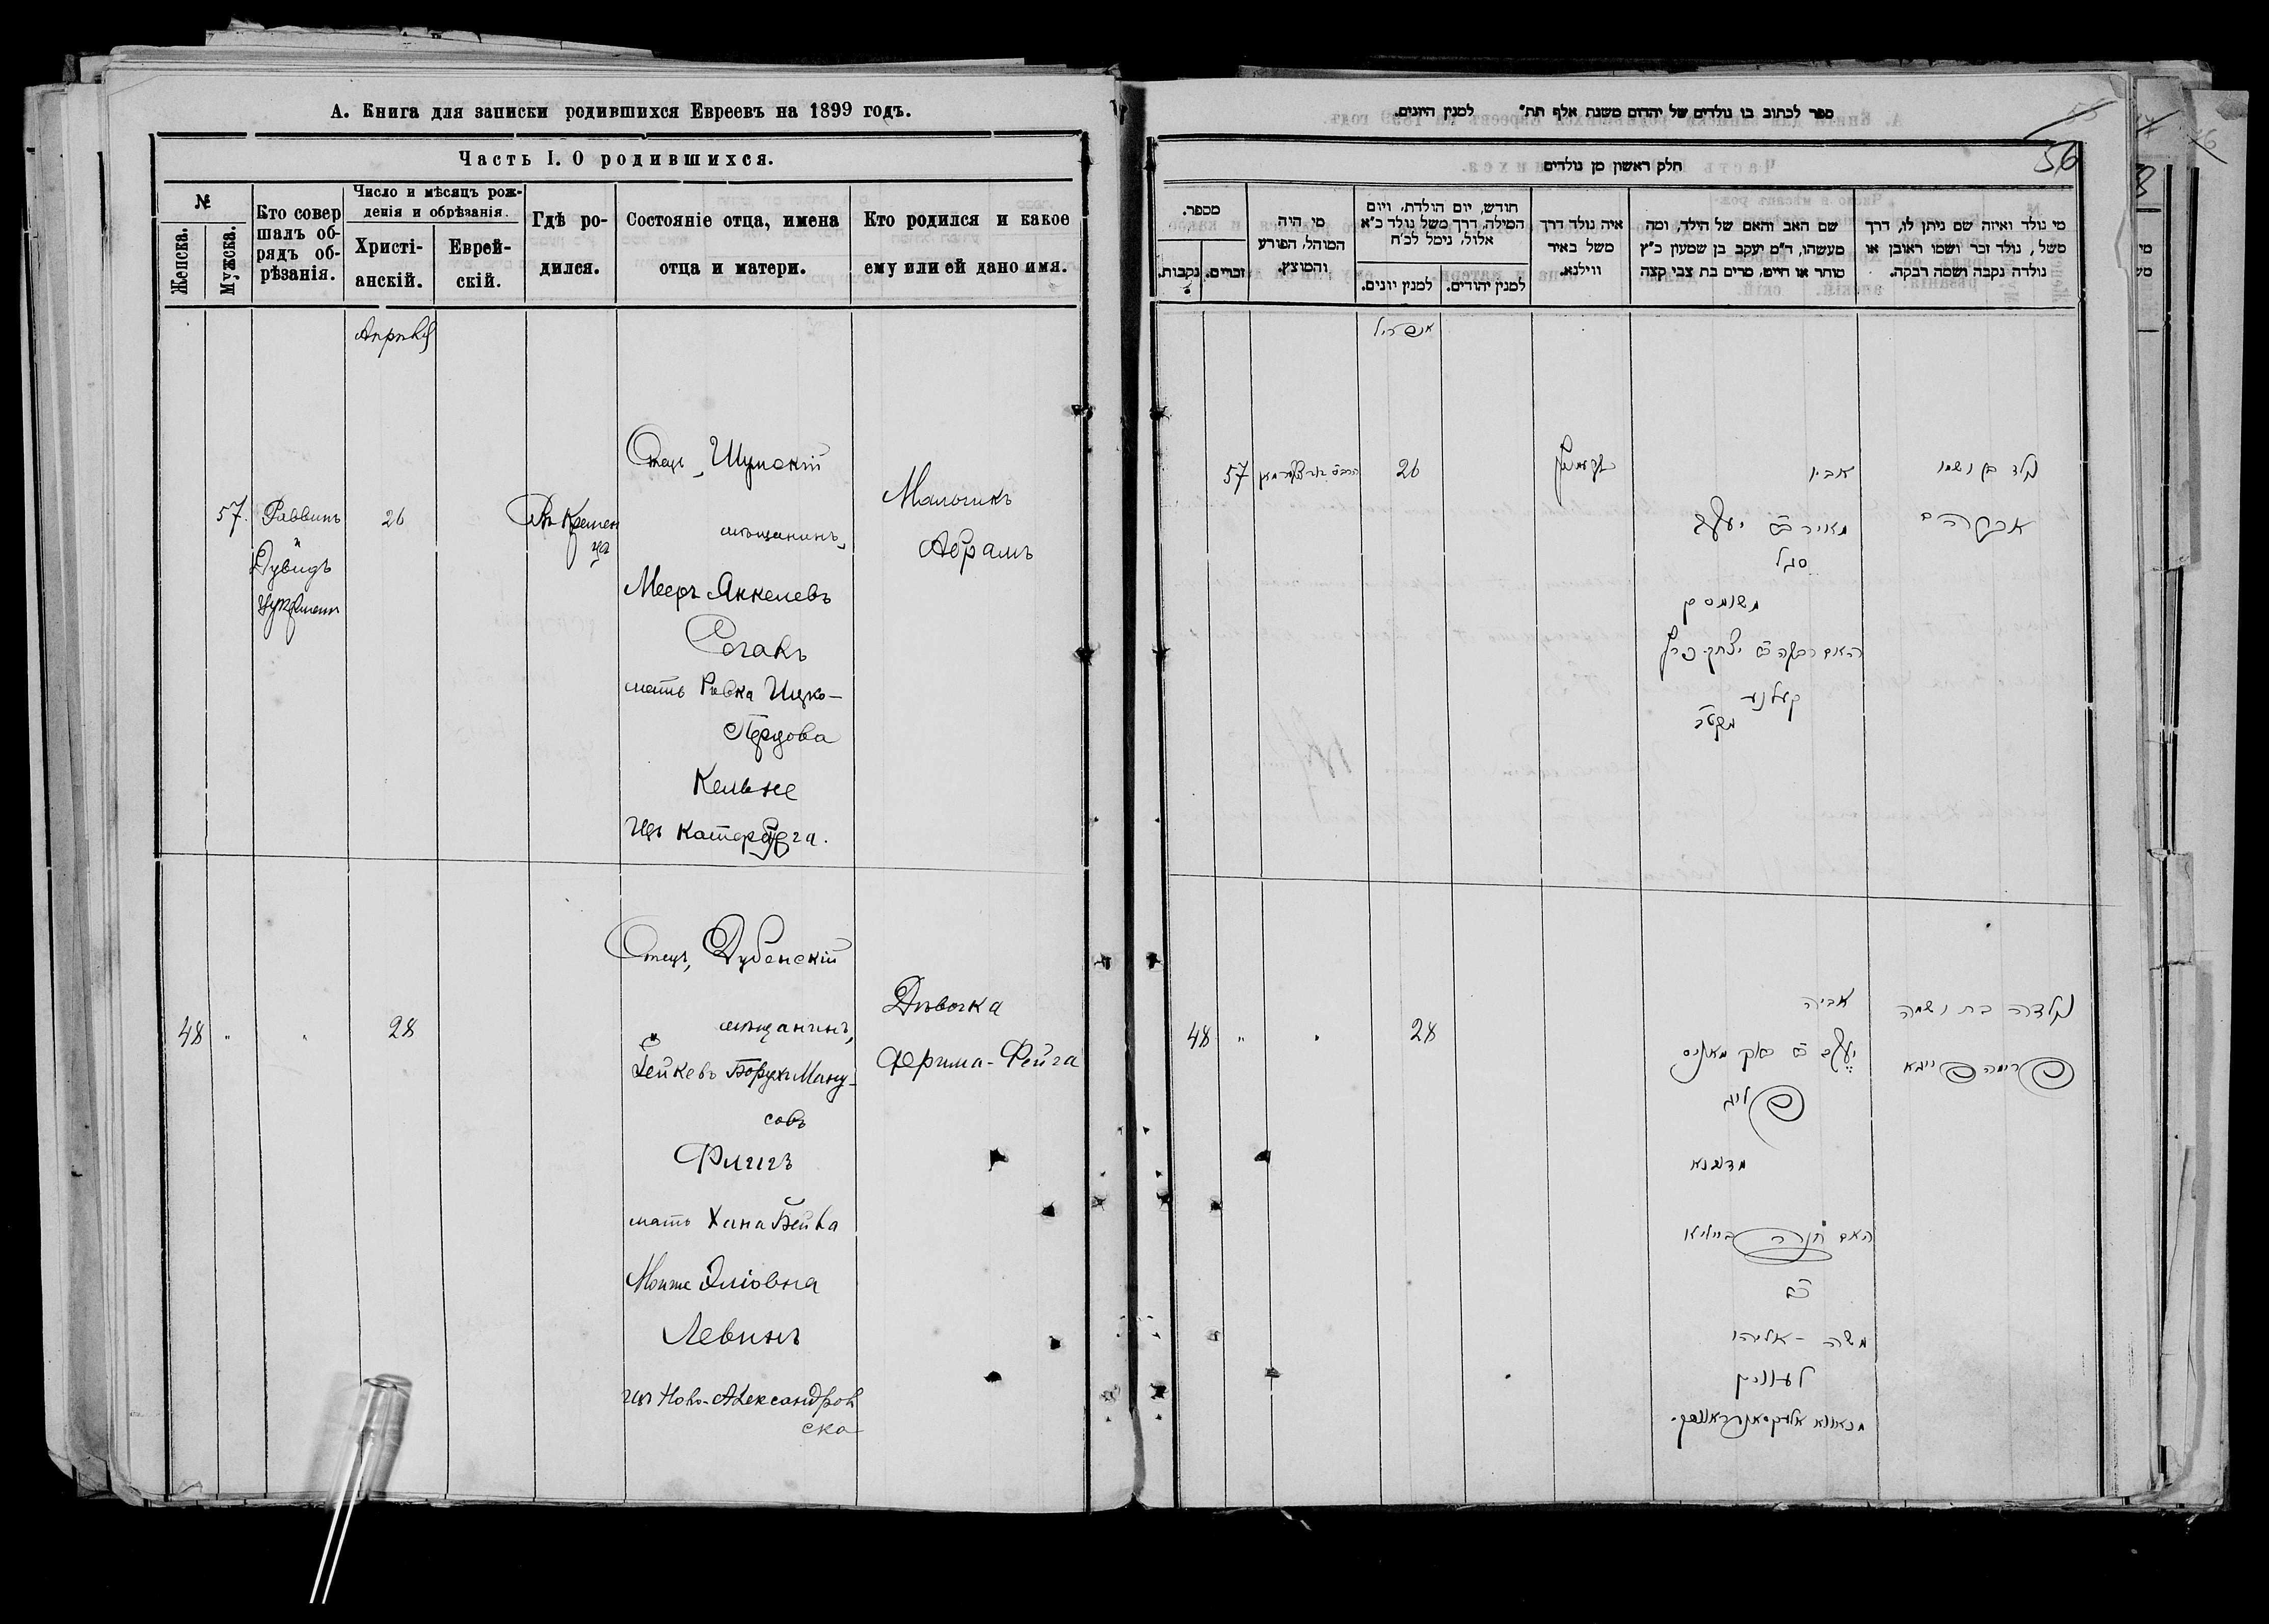 А. Книга для записки родившихся Евреевъ на 1899 годъ.
Часть I. О родившихся.
№
Женска.
Мужска.
Кто совер
шалъ об-
рядъ об-
рѣзанія.
Число и мѣсяцъ рож-
денія и обрѣзанія.
Христі-
анскій.
Еврей-
скій.
Гдѣ ро-
дился.
Состояніе отца, имена
отца и матери.
Кто родился и какое
ему или ей дано имя.
Апрѣль
57.
Раввинъ
и
Дувидъ
26
Въ Кремен
ца
Отецъ, Шумскій
мѣщанинъ,
Мееръ Янкелевъ
Сегалъ
мать Ривка Ицко-
Перцова
Кельнее
Мальчикъ
Абрамъ
48 " " 28
Отецъ, Дубенскій
мѣщанинъ,
Борухъ Ману-
совъ
Флигъ
мать Хана Бейла
Мошке Эліовна
Левинъ
изъ Ново-Александров
ска
Дѣвочка
Фрима-Фейга
ספר לכתוב בו נולדים של יהדום משנת אלף תת״ למנין היונים.
56
חלק ראשון מן נולדים
מספר.
זכרים.
נקבות.
מי היה
המוהל, הפורע
והמוצץ.
חודש, יום הולדת, ויום
המילה, דרך משל נולד כ״א
אלול, נימל לכ״ח
למנין יונים.
למנין יהודים.
איה נולד דרך
משל באיר
ווילנא.
שם האב והאם של הילד, ומה
מעשהו, ד״מ יעקב בן שמעון כ״ץ
סוחר או חייט, מרים בת צבי קצה
מי נולד ואיזה שם ניתן לו, דרך
משל, נולד זכר ושמו ראובן או
נולדה נקבה ושמה רבקה.
אפריל
57
26
אביו
מאיר ב״ר יעקב
סגל
משומסק
האם רבקה ב״ר יצחק פרץ
קעלנער
נולד בן ושמו
אברהם
48 " " 28
אביה
יעקב ב״ר ברוך מאניס
פליג
מדובנא
האם חנה ביילא
ב״ר
משה - אליהו
לעווין
מנאווא אלעקסאנדראווסק.
נולדה בת ושמה
פרימה פייגא